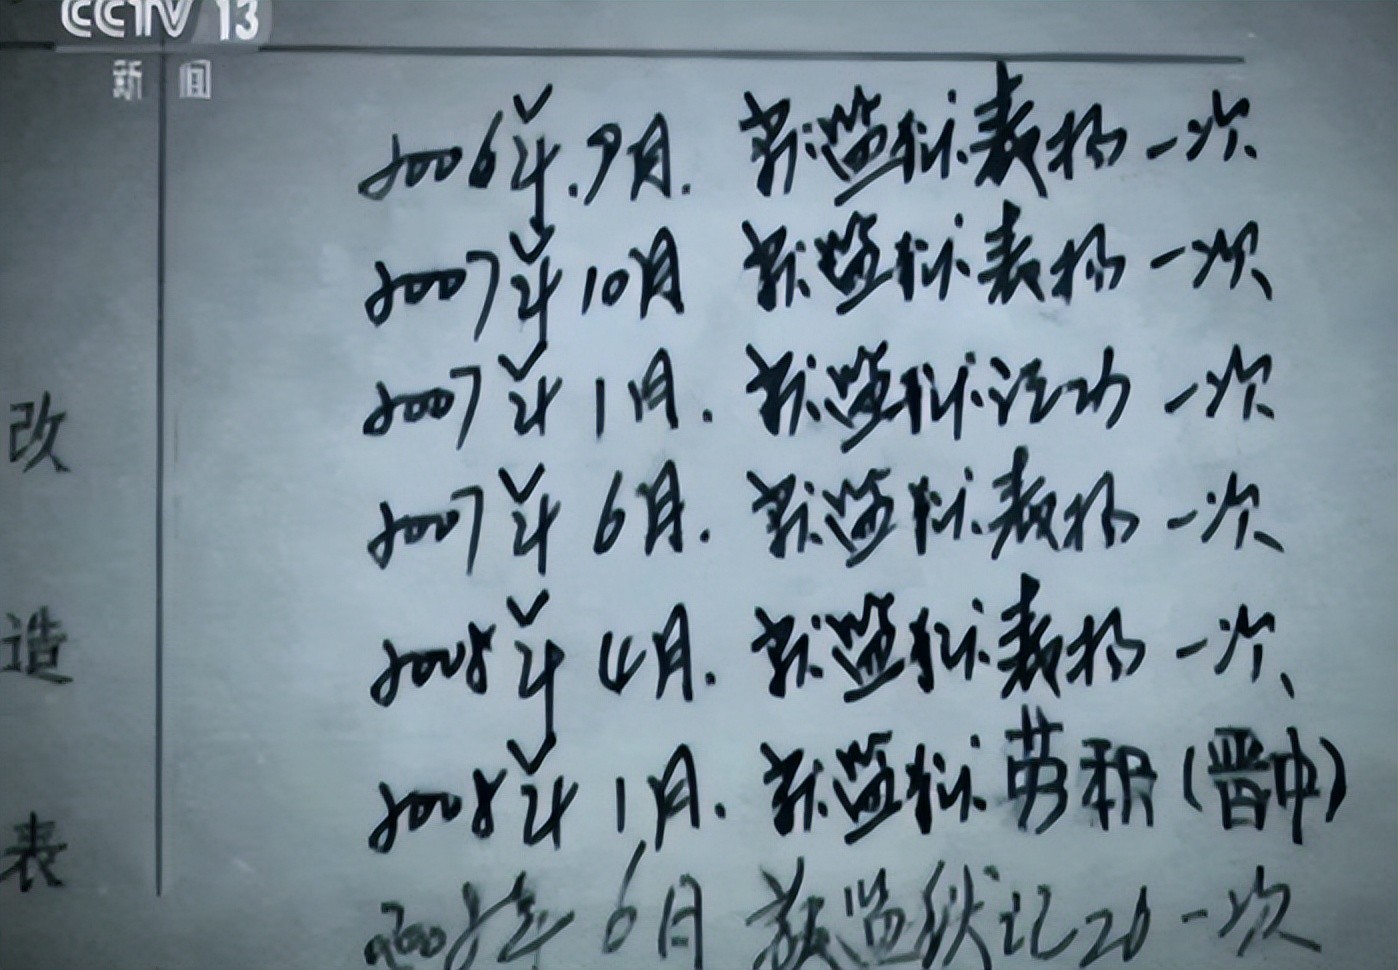 CCTV 13
新闻
改造表
2006年.9月. 获监狱表扬一次
2007年10月 获监狱表扬一次
2007年1月. 获监狱记功一次
2007年6月. 获监狱表扬一次
2008年4月. 获监狱表扬一次、
2008年1月. 获监狱劳积(晋中)
2008年6月 获监狱记功一次